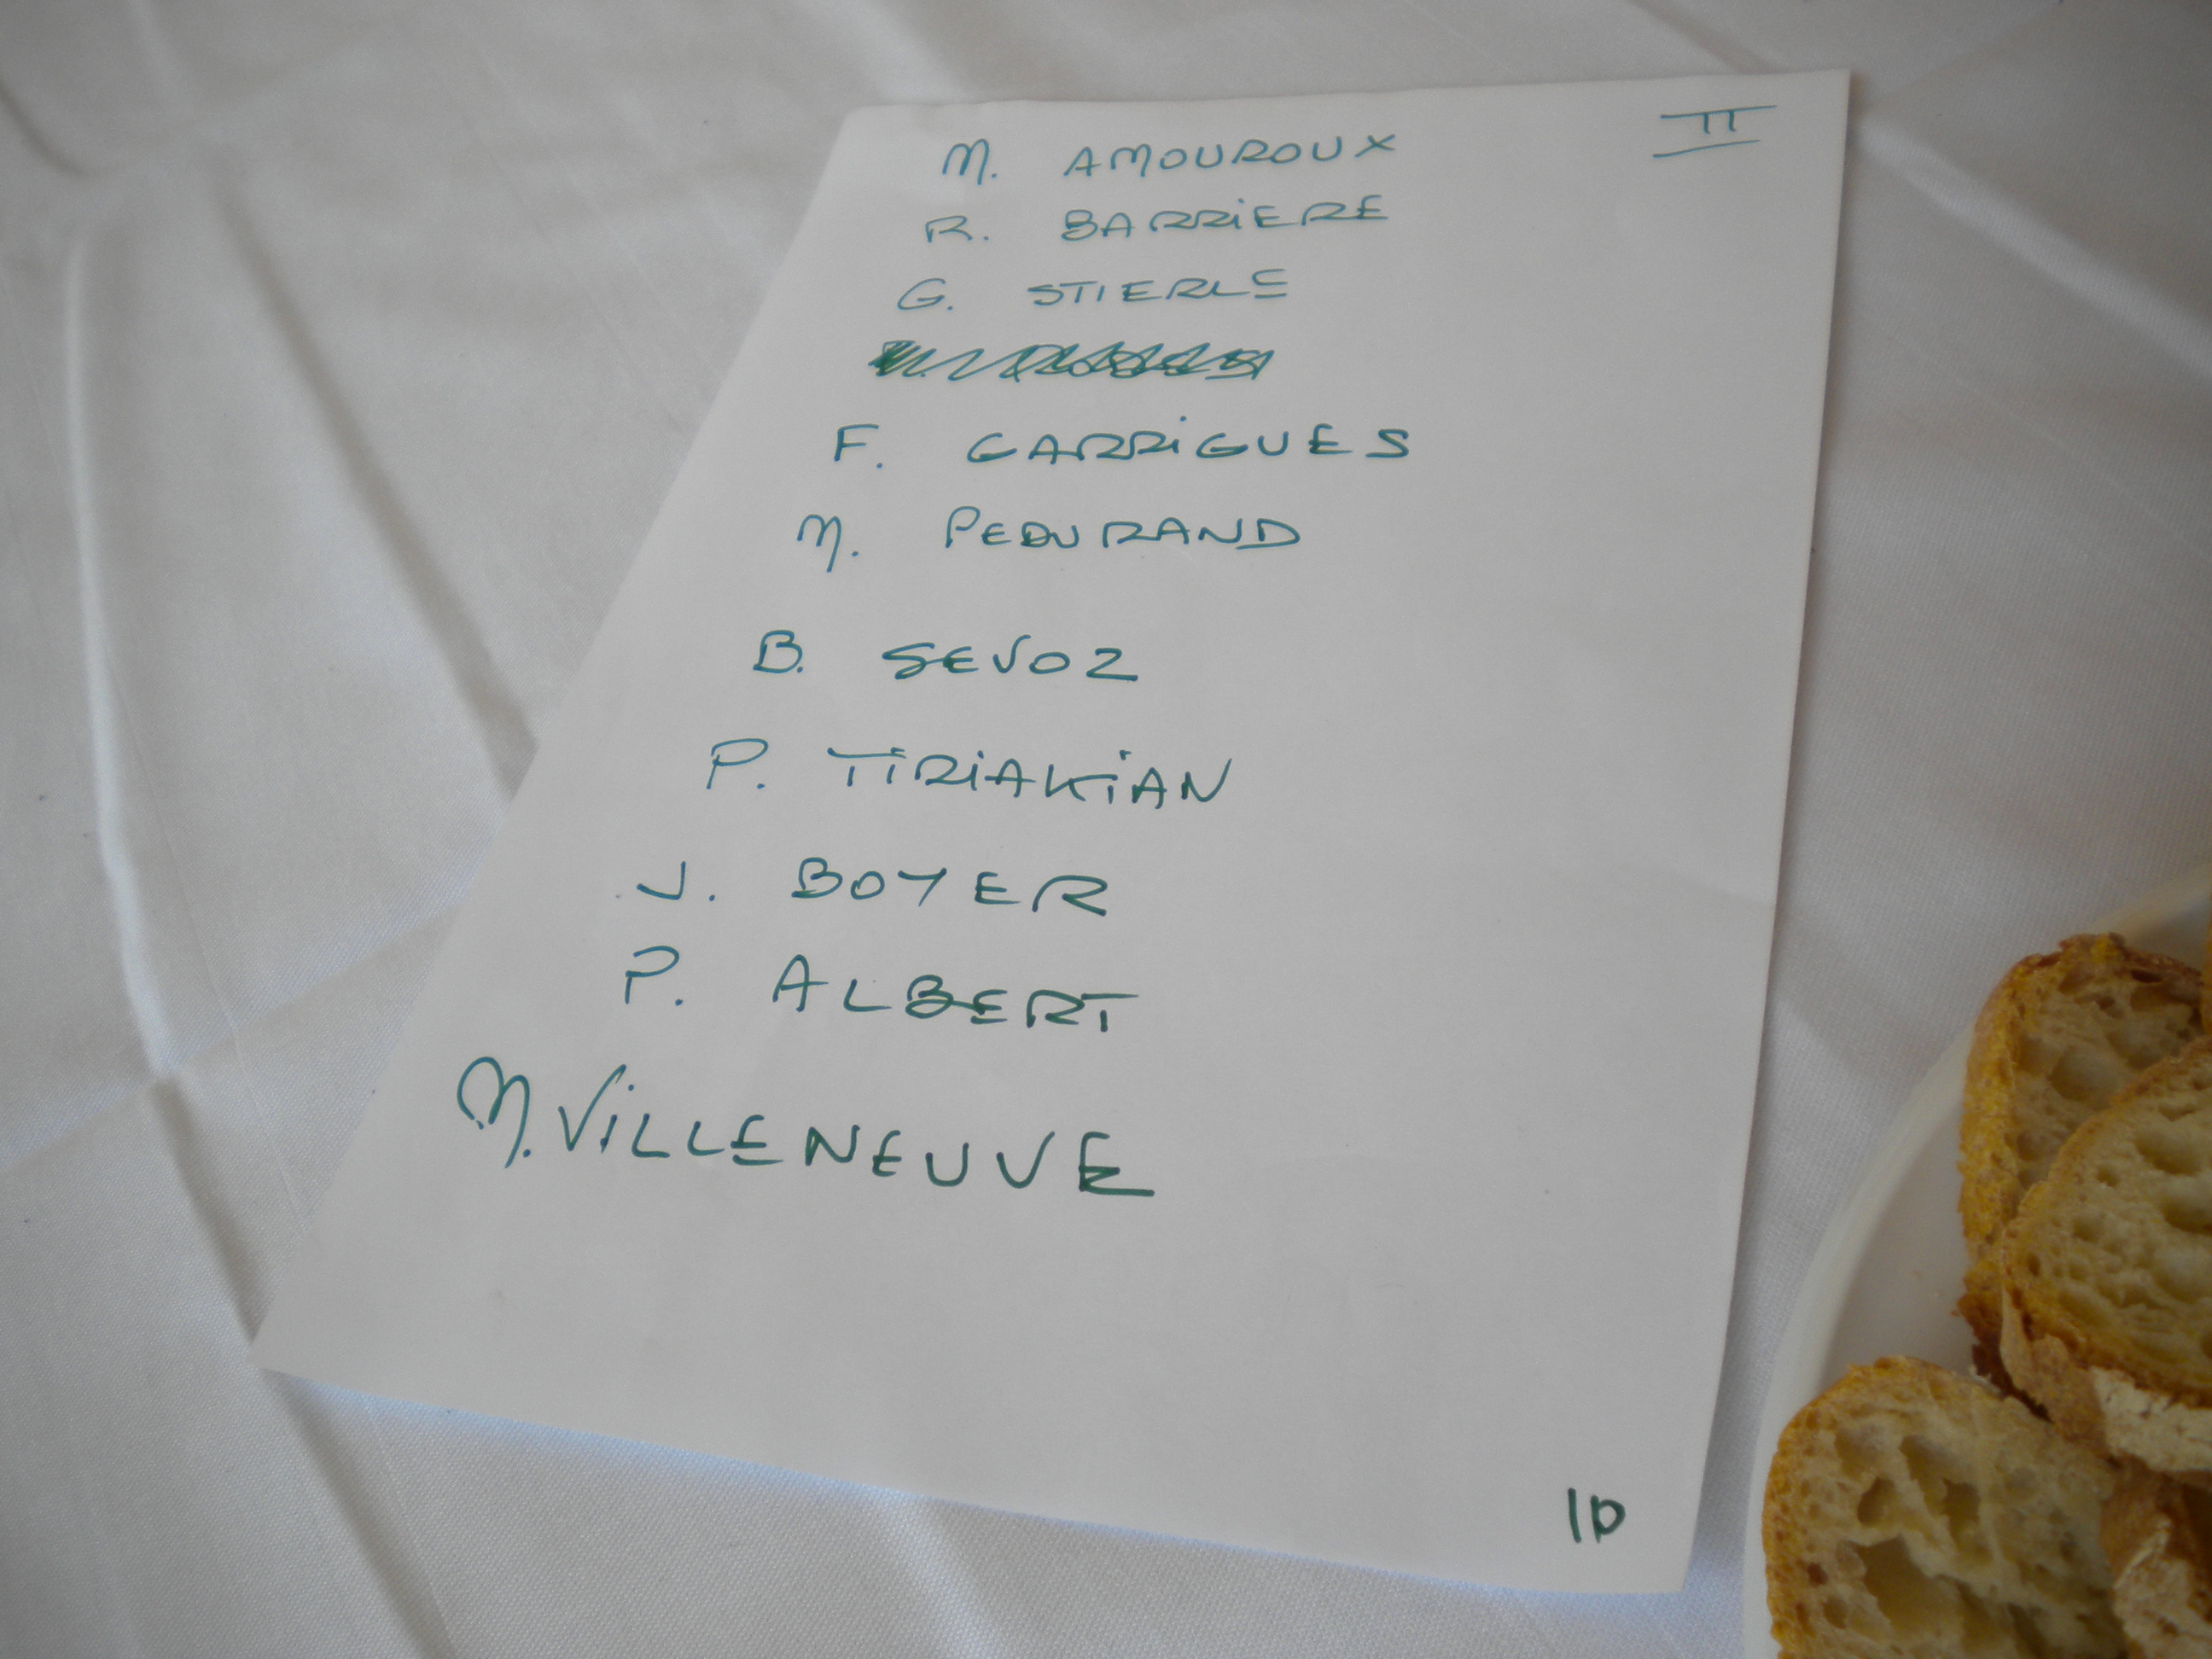 II
M. AMOUROUX
R. BARRiERE
G. STIERLE
F. GARRiGUES
M. PEDURAND
B. SEVOZ
P. TiRiAKiAN
J. BOYER
P. ALBERT
M. ViLLENEUVE
10